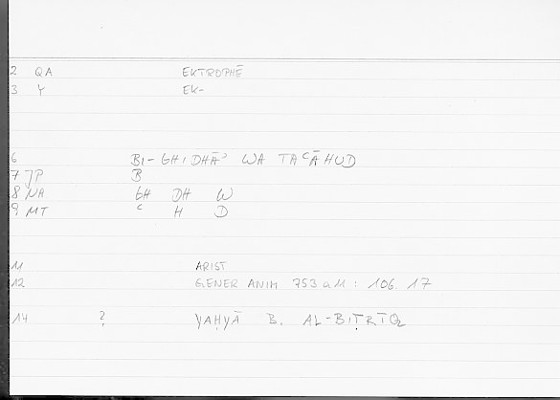 2 QA EKTROPHĒ
3 Y EK-
6 BI-GHIDHĀʾ WA TAʿĀHUD
7 JP B
8 NA GH DH W
9 MT ʿ H D
11 ARIST
12 GENER ANIM 753 a 11 : 106.17
14 ? YAḤYĀ B. AL-BIṬRĪQ